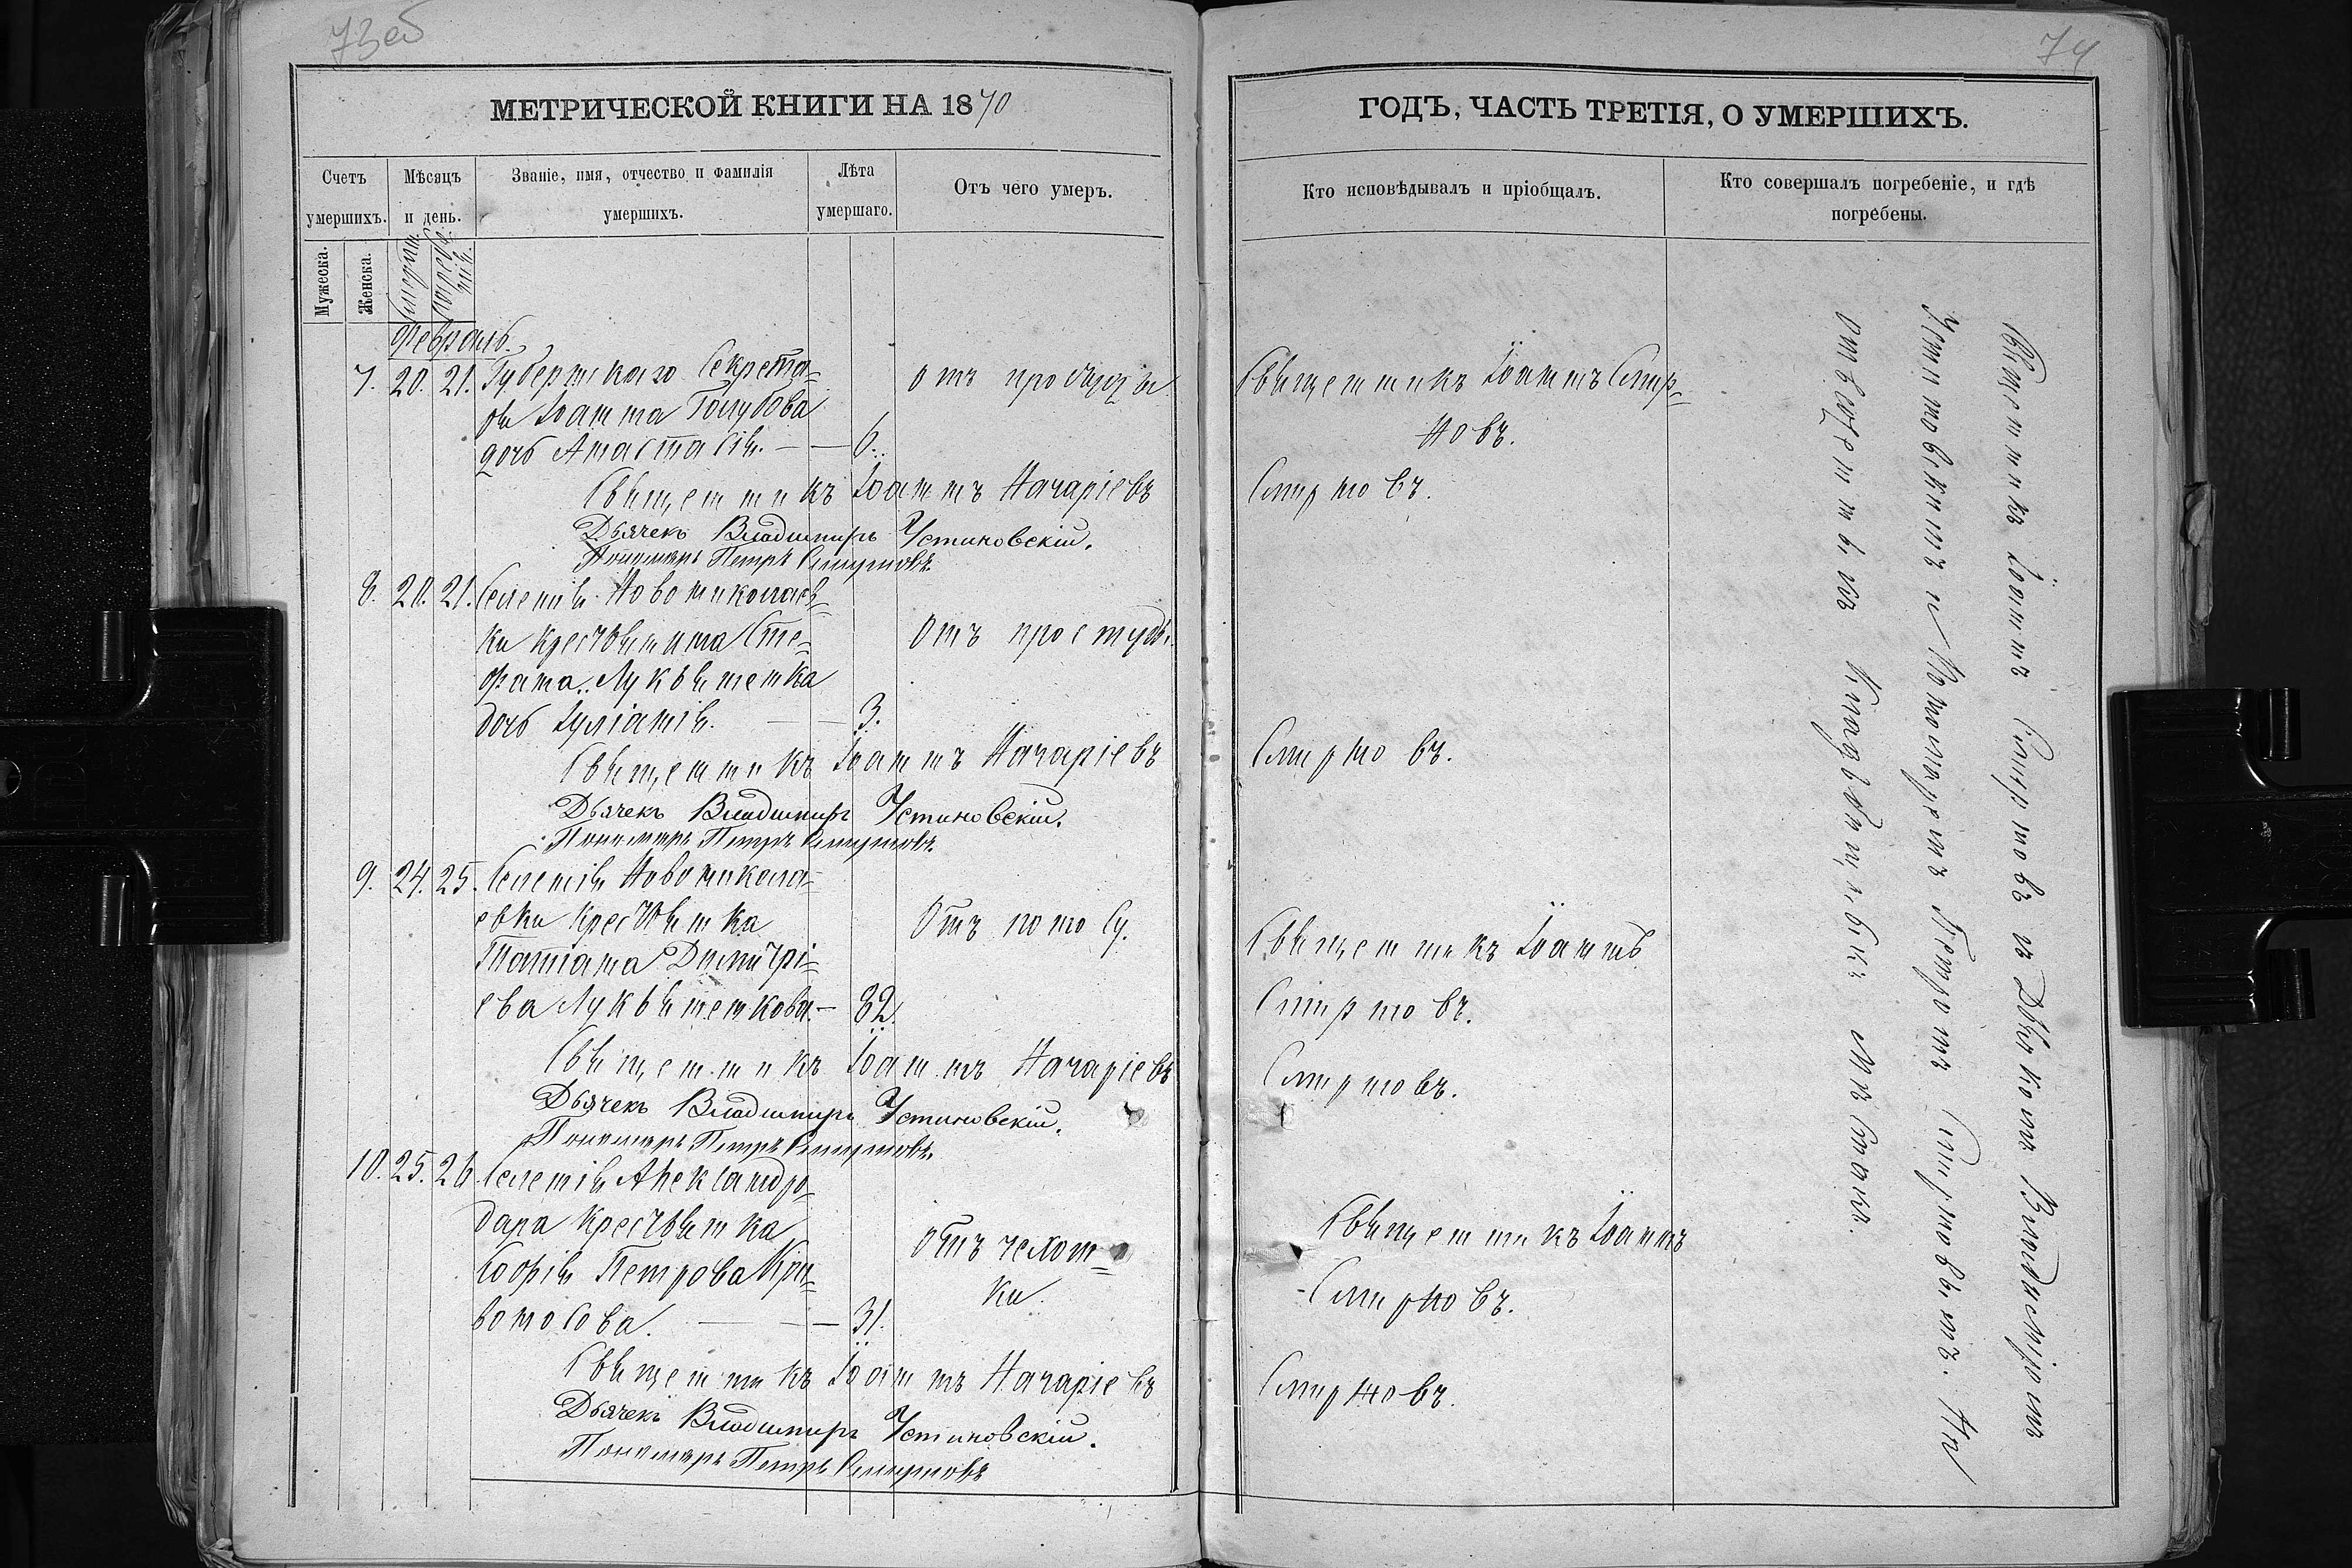 73об
МЕТРИЧЕСКОЙ КНИГИ НА 1870
Счетъ умершихъ.
Мѣсяцъ и день.
Званіе, имя, отчество и фамилія умершихъ.
Лѣта умершаго.
Отъ чего умеръ.
Мужеска.
Женска.
смерти.
погребенія.
Февраль.
7. 20. 21. Губернскаго Секрета-
ря Іоанна Голубова
дочь Анастасія. — — 6.
отъ простуды
Священникъ Іоаннъ Начаріевъ
Дьячекъ Владимиръ Устиновскій.
Пономарь Петръ Смирновъ.
8. 20. 21. Селенія Новониколаев-
ки крестьянина Сте-
фана Лукьяненка
дочь Іуліанія. — — 3.
Отъ простуды.
Священникъ Іоаннъ Начаріевъ
Дьячекъ Владимиръ Устиновскій.
Пономарь Петръ Смирновъ.
9. 24. 25. Селенія Новоникола-
евки крестьянка
Татіана Димитрі-
ева Лукьяненкова. — 82.
Отъ поносу.
Священникъ Іоаннъ Начаріевъ
Дьячекъ Владимиръ Устиновскій.
Пономарь Петръ Смирновъ.
10. 25. 26 Селенія Александро-
дара крестьянка
Софія Петрова Кри-
воносова. — — 31.
отъ чехот-
ки.
Священникъ Іоаннъ Начаріевъ
Дьячекъ Владимиръ Устиновскій.
Пономарь Петръ Смирновъ
74
ГОДЪ, ЧАСТЬ ТРЕТІЯ, О УМЕРШИХЪ.
Кто исповѣдывалъ и пріобщалъ.
Кто совершалъ погребеніе, и гдѣ
погребены.
Священникъ Іоаннъ Смир-
новъ.
Смирновъ.
Смирновъ.
Священникъ Іоаннъ
Смирновъ.
Смирновъ.
Священникъ Іоаннъ
Смирновъ.
Смирновъ.
Священникъ Іоаннъ Смирновъ съ Дьячкомъ Владимиромъ
Устиновскимъ и Пономаремъ Петромъ Смирновымъ. На
отведенномъ кладбищѣ